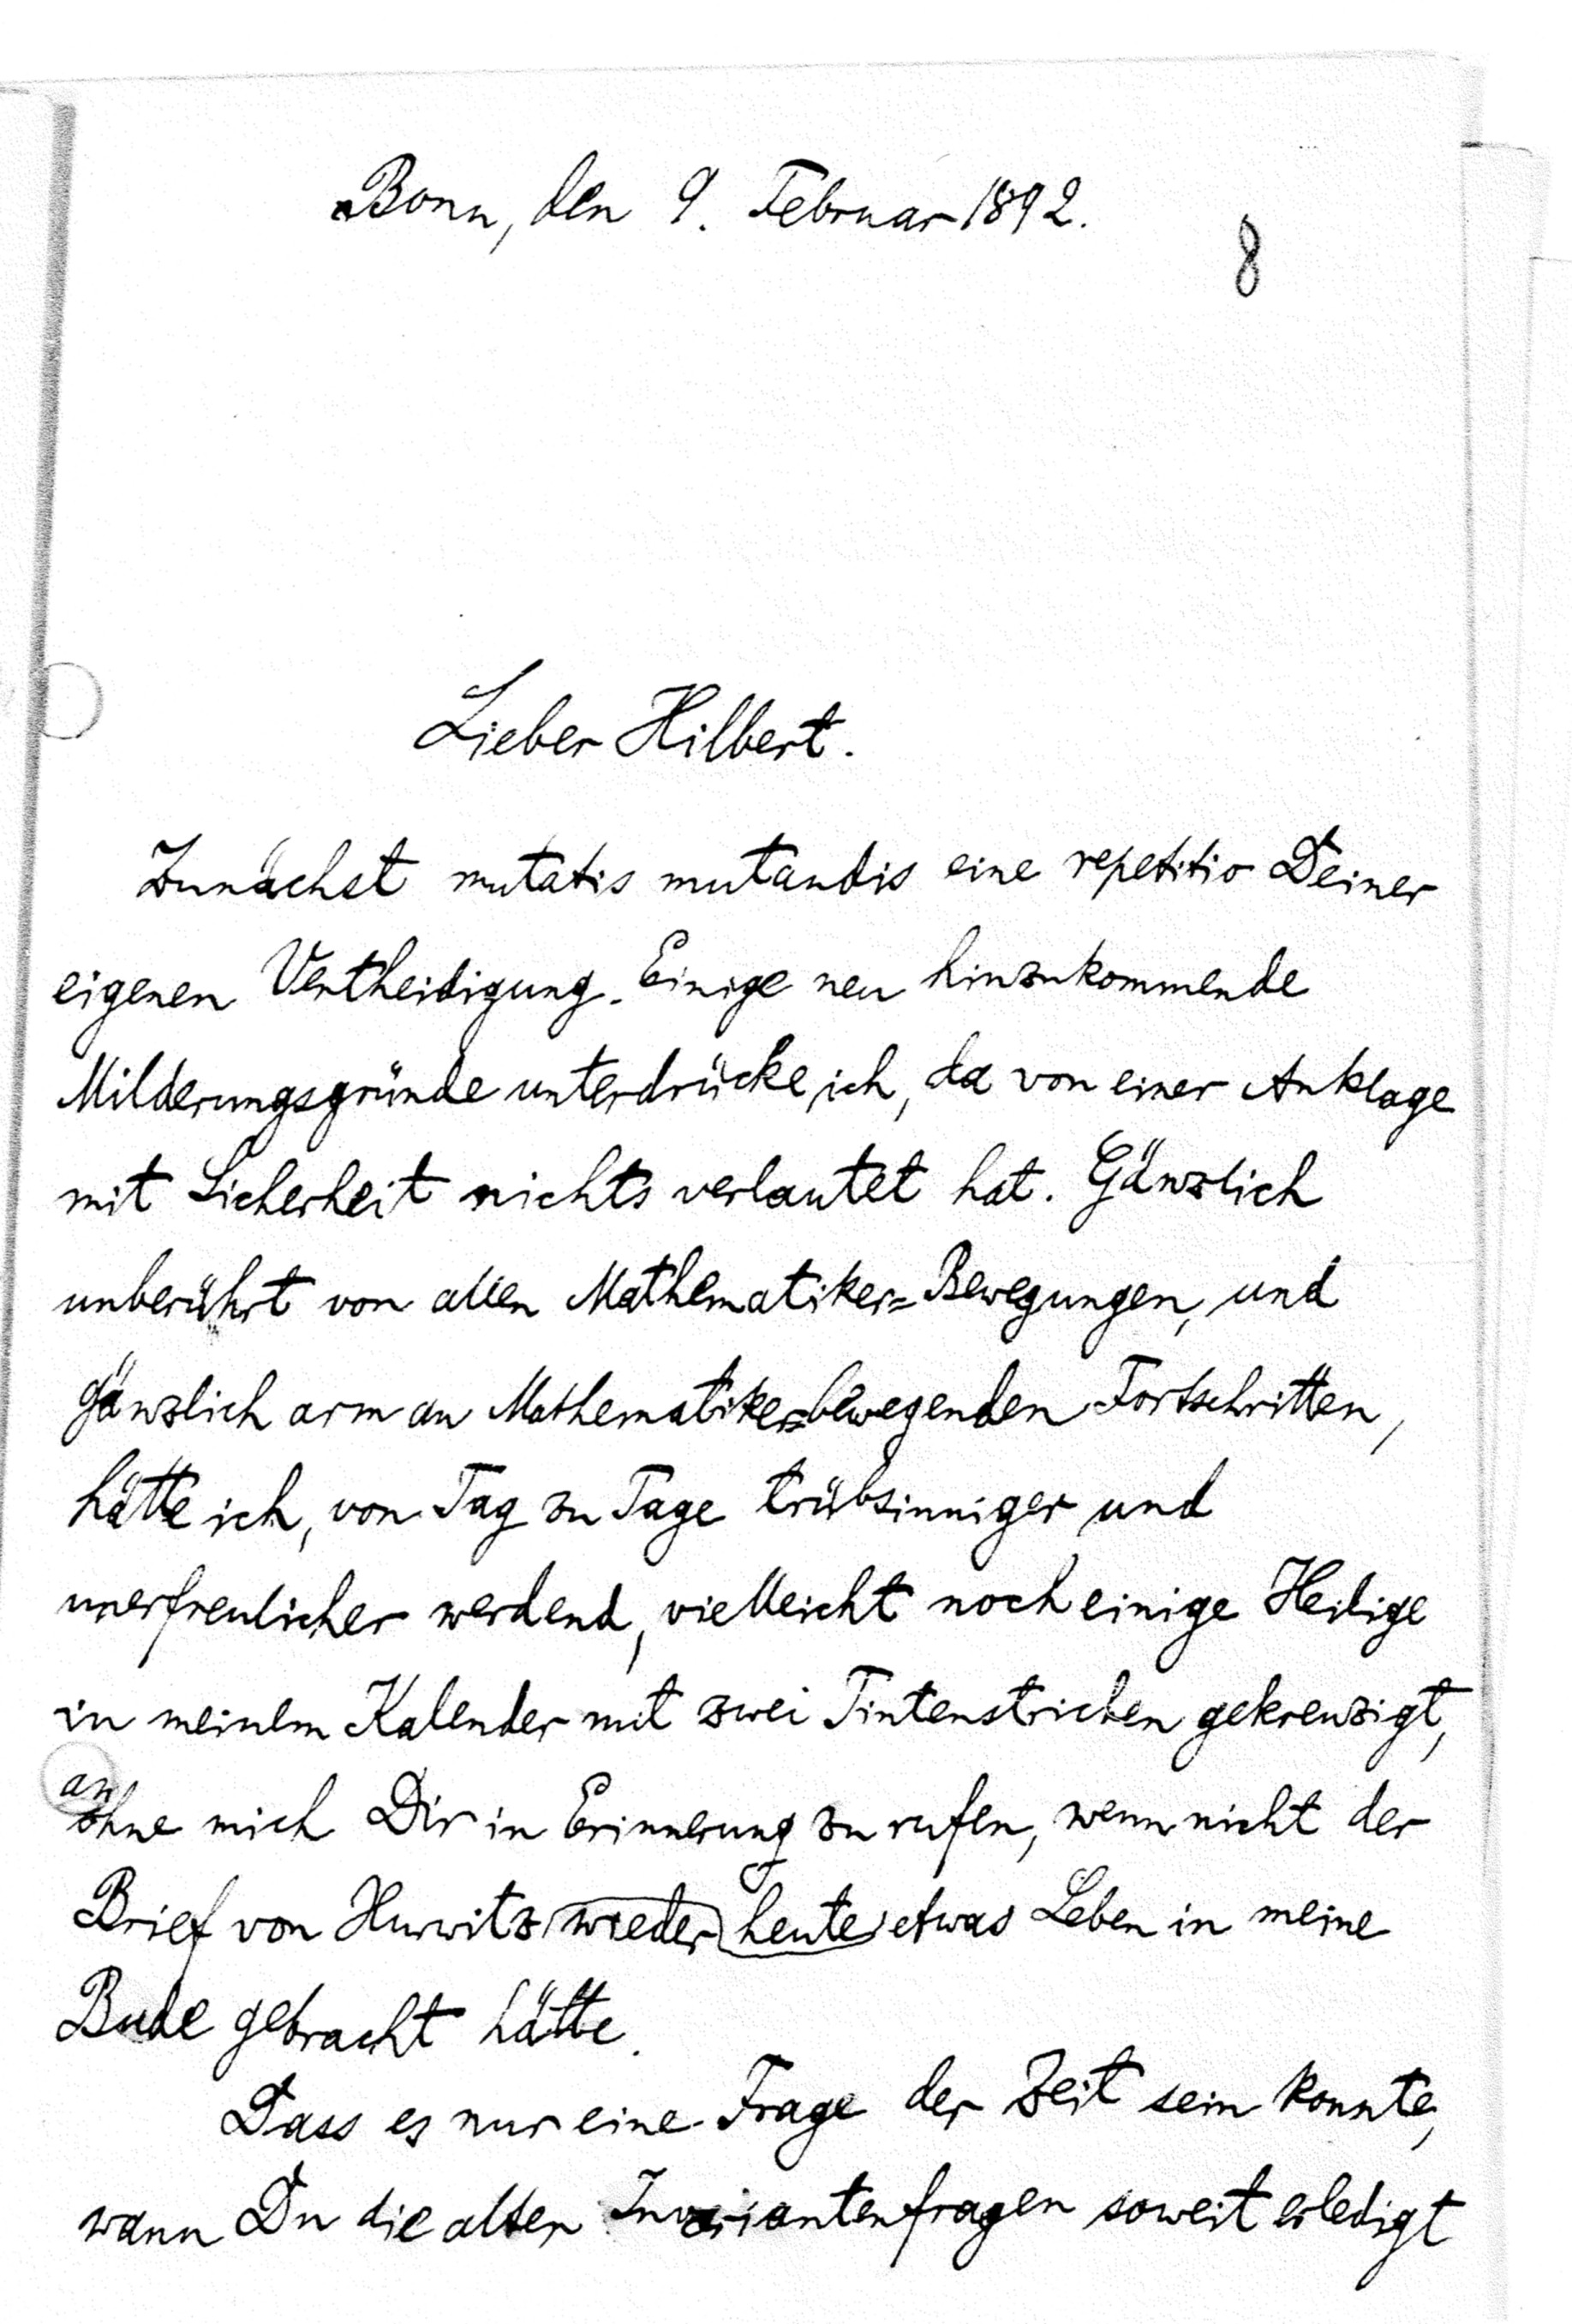 Bonn, den 9. Februar 1892.
8
Lieber Hilbert.
Zunächst mutatis mutandis eine repetitio Deiner
eigenen Vertheidigung. Einige neu hinzukommende
Milderungsgründe unterdrücke ich, da von einer Anklage
mit Sicherheit nichts verlautet hat. Gänzlich
unberührt von allen Mathematiker=Bewegungen, und
gänzlich arm an Mathematiker=bewegenden Fortschritten,
hätte ich, von Tag zu Tage trübsinniger und
unerfreulicher werdend, vielleicht noch einige Heilige
in meinem Kalender mit zwei Tintenstrichen gekreuzigt,
an
ohne mich Dir in Erinnerung zu rufen, wenn nicht der
Brief von Hurwitz wieder heute etwas Leben in meine
Bude gebracht hätte.
Dass es nur eine Frage der Zeit sein konnte,
wann Du die alten Invariantenfragen soweit erledigt